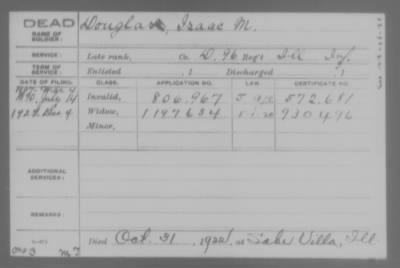 DEAD
NAME OF SOLDIER: Douglas, Isaac M.
SERVICE: Late rank, Co. D, 96 Reg't Ill Inf.
TERM OF SERVICE: Enlisted , 1 Discharged , 1
DATE OF FILING. CLASS. APPLICATION NO. LAW. CERTIFICATE NO.
1890, July 14 Invalid, 806.967 572.681
Dec 4 Widow, 1197634 930496
Minor,
ADDITIONAL SERVICES:
REMARKS:
Died Oct. 31, 1924, at Lake Villa, Ill.